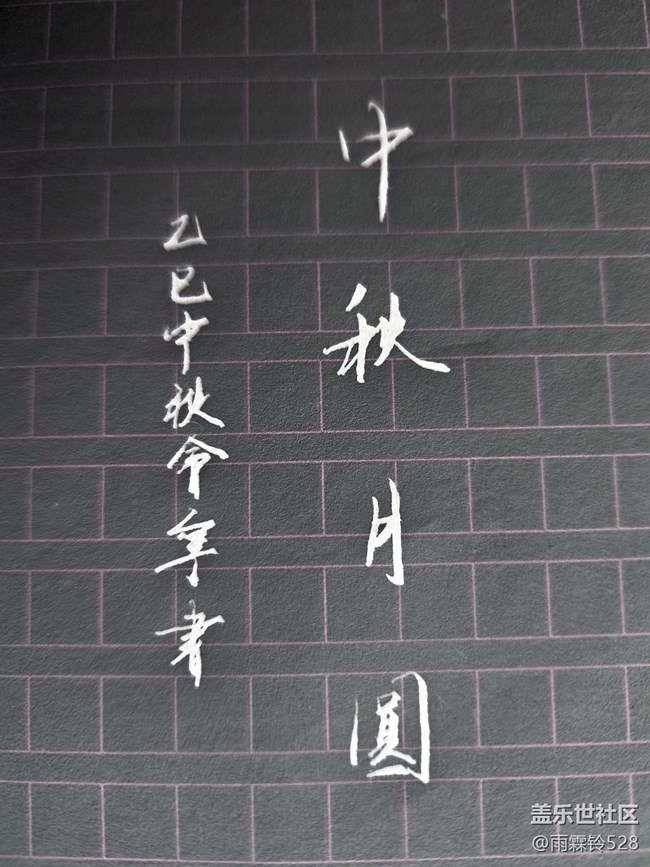 中秋月圓
乙巳中秋命書
盖乐世社区
@雨霖铃528